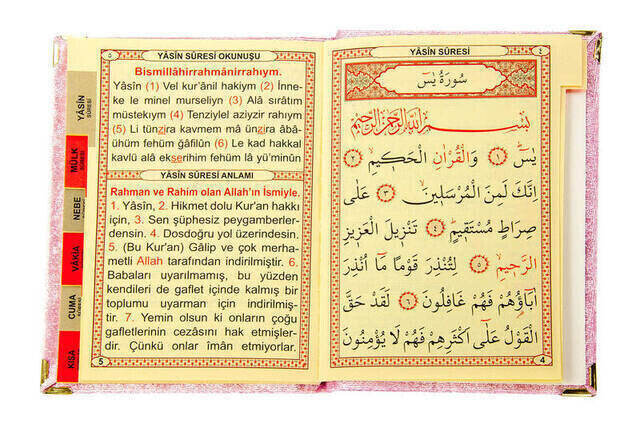 ٥ YÂSİN SÛRESİ OKUNUŞU
Bismillâhirrahmânirrahıym.
Yâsîn (1) Vel kur'ânil hakiym (2) İnne-
ke le minel murseliyn (3) Alâ sırâtım
müstekiym (4) Tenziylel aziyzir rahıym
(5) Li tünzira kavmem mâ ünzira âbâ-
ühüm fehüm ğâfilûn (6) Le kad hakkal
kavlü alâ ekserihim fehüm lâ yü'minûn
YÂSİN SÛRESİ ANLAMI
Rahman ve Rahim olan Allah'ın İsmiyle.
1. Yâsîn, 2. Hikmet dolu Kur'an hakkı
için, 3. Sen şüphesiz peygamberler-
densin. 4. Dosdoğru yol üzerindesin.
5. (Bu Kur'an) Gâlip ve çok merha-
metli Allah tarafından indirilmiştir. 6.
Babaları uyarılmamış, bu yüzden
kendileri de gaflet içinde kalmış bir
toplumu uyarman için indirilmiş-
tir. 7. Yemin olsun ki onların çoğu
gafletlerinin cezasını hak etmişler-
dir. Çünkü onlar îmân etmiyorlar.
5
YÂSİN SÛRESİ
MÜLK SÛRESİ
NEBE
VÂKIA
CUMA
KISA
YÂSİN SÛRESİ ٤
سُورَةُ يٰسٓ
بِسْمِ اللّٰهِ الرَّحْمٰنِ الرَّحِيمِ
يٰسٓ ﴿١﴾ وَالْقُرْاٰنِ الْحَكِيمِ ﴿٢﴾
اِنَّكَ لَمِنَ الْمُرْسَلِينَ ﴿٣﴾ عَلٰى
صِرَاطٍ مُسْتَقِيمٍ ﴿٤﴾ تَنْزِيلَ الْعَزِيزِ
الرَّحِيمِ ﴿٥﴾ لِتُنْذِرَ قَوْمًا مَٓا اُنْذِرَ
اٰبَٓاؤُهُمْ فَهُمْ غَافِلُونَ ﴿٦﴾ لَقَدْ حَقَّ
الْقَوْلُ عَلٰٓى اَكْثَرِهِمْ فَهُمْ لَا يُؤْمِنُونَ
4